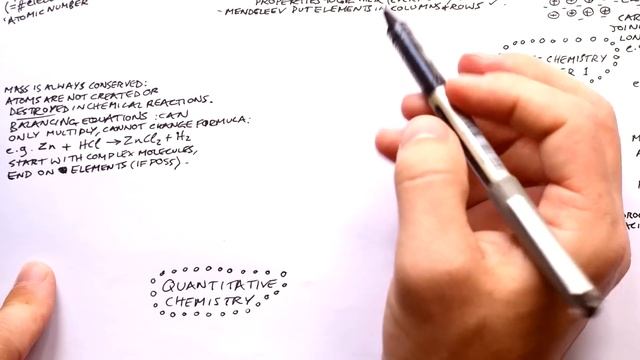 (=#
ATOMIC NUMBER
PROPERTIES TOGETHER
- MENDELEEV PUT ELEMENTS IN COLUMNS & ROWS ✓
MASS IS ALWAYS CONSERVED:
ATOMS ARE NOT CREATED OR
DESTROYED IN CHEMICAL REACTIONS.
BALANCING EQUATIONS: CAN
ONLY MULTIPLY, CANNOT CHANGE FORMULA:
e.g. Zn + HCl → ZnCl₂ + H₂
START WITH COMPLEX MOLECULES,
END ON ELEMENTS (IF POSS).
QUANTITATIVE
CHEMISTRY
CHEMISTRY
R 1
CAR
JOINI
LON
e.